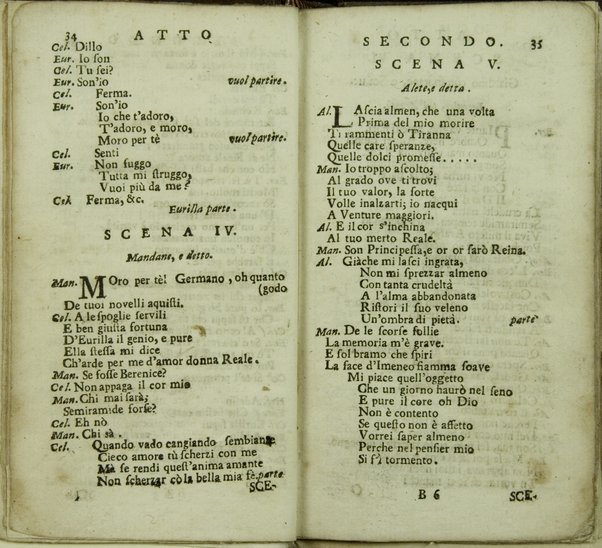 34 ATTO
Cel. Dillo
Eur. Io son
Cel. Tu sei?
Eur. Son'io vuol partire.
Cel. Ferma.
Eur. Son'io
Io che t'adoro,
T'adoro, e moro,
Moro per tè vuol partire.
Cel. Senti
Eur. Non fuggo
Tutta mi struggo,
Vuoi più da me?
Cel. Ferma, &c.
Eurilla parte.
SCENA IV.
Mandane, e detto.
Man. MOro per tè! Germano, oh quanto
(godo
De tuoi novelli aquisti.
Cel. A le spoglie servili
E ben giusta fortuna
D'Eurilla il genio, e pure
Ella stessa mi dice
Ch'arde per me d'amor donna Reale.
Man. Se fosse Berenice?
Cel. Non appaga il cor mio
Man. Chi mai sarà;
Semiramide forse?
Cel. Eh nò
Man. Chi sà.
Cel. Quando vado cangiando sembiante
Cieco amore tù scherzi con me
Ma se rendi quest'anima amante
Non scherzar cò la bella mia fè. parte
SCE-
SECONDO. 35
SCENA V.
Alete, e detta.
Al. LAscia almen, che una volta
Prima del mio morire
Ti rammenti ò Tiranna
Quelle care speranze,
Quelle dolci promesse.....
Man. Io troppo ascolto;
Al grado ove ti trovi
Il tuo valor, la sorte
Volle inalzarti; io nacqui
A Venture maggiori.
Al. E il cor s'inchina
Al tuo merto Reale.
Man. Son Principessa, e or or sarò Reina.
Al. Giàche mi lasci ingrata,
Non mi sprezzar almeno
Con tanta crudeltà
A l'alma abbandonata
Ristori il suo veleno
Un'ombra di pietà. parte
Man. De le scorse follie
La memoria m'è grave.
E sol bramo che spiri
La face d'Imeneo fiamma soave
Mi piace quell'oggetto
Che un giorno haurò nel seno
E pure il core oh Dio
Non è contento
Se questo non è affetto
Vorrei saper almeno
Perche nel pensier mio
Si fà tormento.
B 6 SCE-